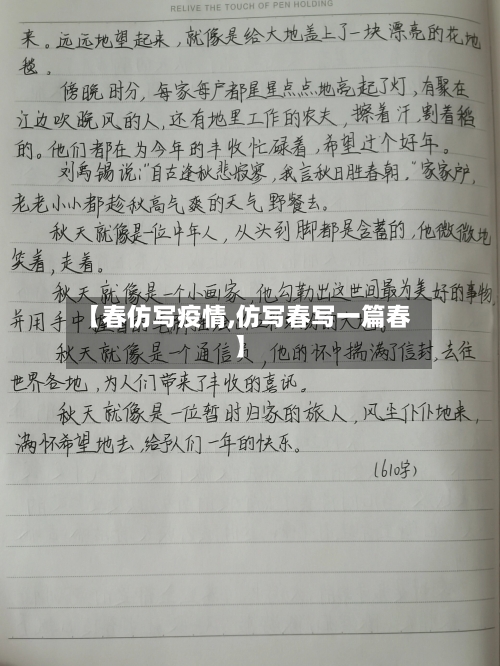 RELIVE THE TOUCH OF PEN HOLDING
来。远远地望起来,就像是给大地盖上了一块漂亮的花地
毯。
傍晚时分,每家每户都星星点点地亮起了灯,有聚在
江边吹晚风的人,还有地里工作的农夫,擦着汗,割着稻
的。他们都在为今年的丰收忙碌着,希望过个好年。
刘禹锡说:“自古逢秋悲寂寥,我言秋日胜春朝,”家家户户,
老老小小都趁秋高气爽的天气野餐去。
秋天就像是一位中年人,从头到脚都是含蓄的,他微微地
笑着,走着。
秋天就像是一个小画家,他勾勒出这世间最为美好的事物,
并用手中
【春仿写疫情,仿写春写一篇春
】
秋天就像是一个通信员,他的怀中揣满了信封,去往
世界各地,为人们带来了丰收的喜讯。
秋天就像是一位暂时归家的旅人,风尘仆仆地来,
满怀希望地去,给予人们一年的快乐。
(610字)